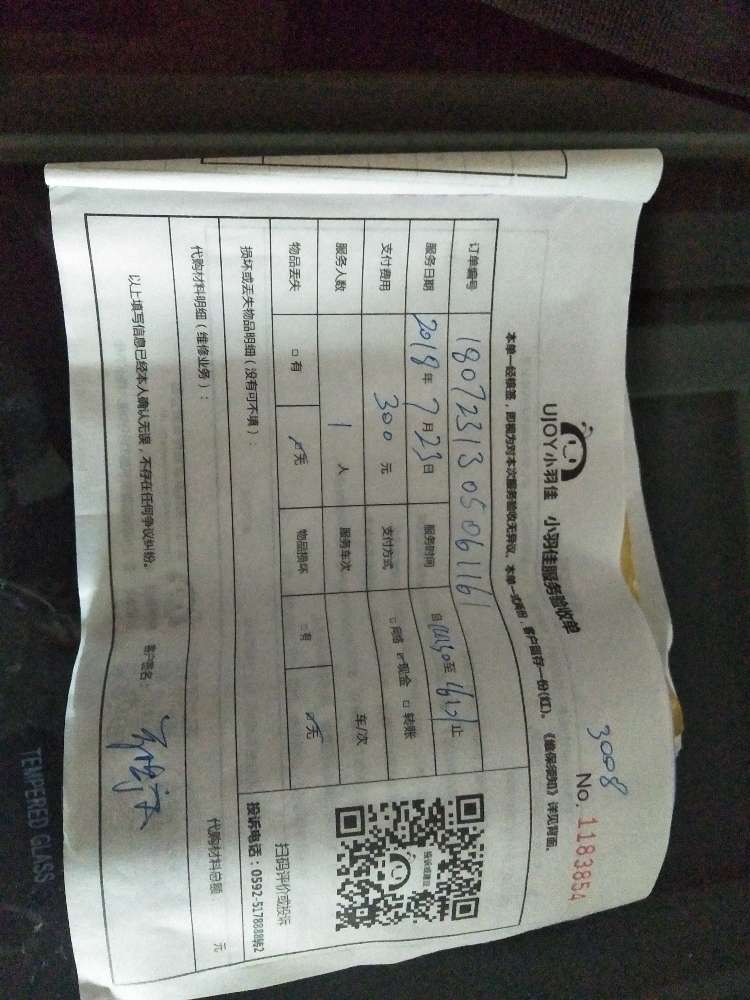 3008
UJOY小羽佳 小羽佳服务验收单 No. 1183854
本单一经填签，即视为对本次服务验收无异议，本单一式两份，客户留存一份(红)。《维保须知》详见背面。
订单编号 1807231305061161
服务日期 2018年7月23日 服务时间 自 至 止
支付费用 300元 支付方式 □网络 ☑现金 □转账
服务人数 1人 服务车次 车/次
物品丢失 □有 ☑无 物品损坏 □有 ☑无
投诉或建议
扫码评价或投诉
投诉电话：0592-5178888转2
损坏或丢失物品明细（没有可不填）：
代购材料明细（维修业务）： 代购材料总额 元
以上填写信息已经本人确认无误，不存在任何争议纠纷。 客户签名：
TEMPERED GLASS